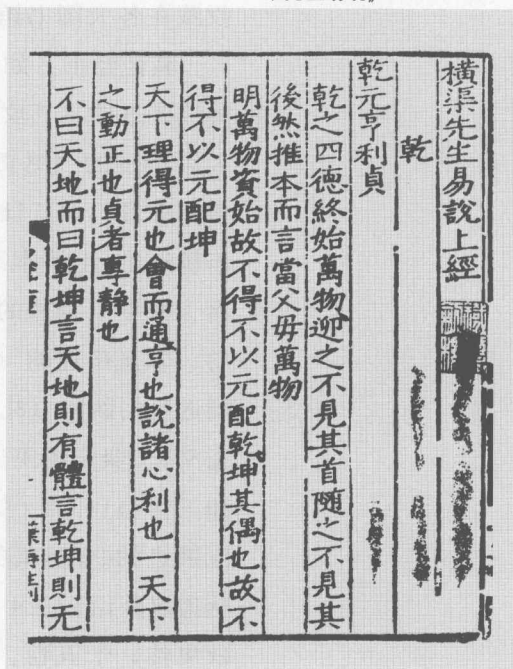 橫渠先生易說上經
乾
乾元亨利貞
乾之四德終始萬物迎之不見其首隨之不見其
後然推本而言當父毋萬物
明萬物資始故不得不以元配乾坤其偶也故不
得不以元配坤
天下理得元也會而通亨也說諸心利也一天下
之動正也貞者專静也
不曰天地而曰乾坤言天地則有體言乾坤則无